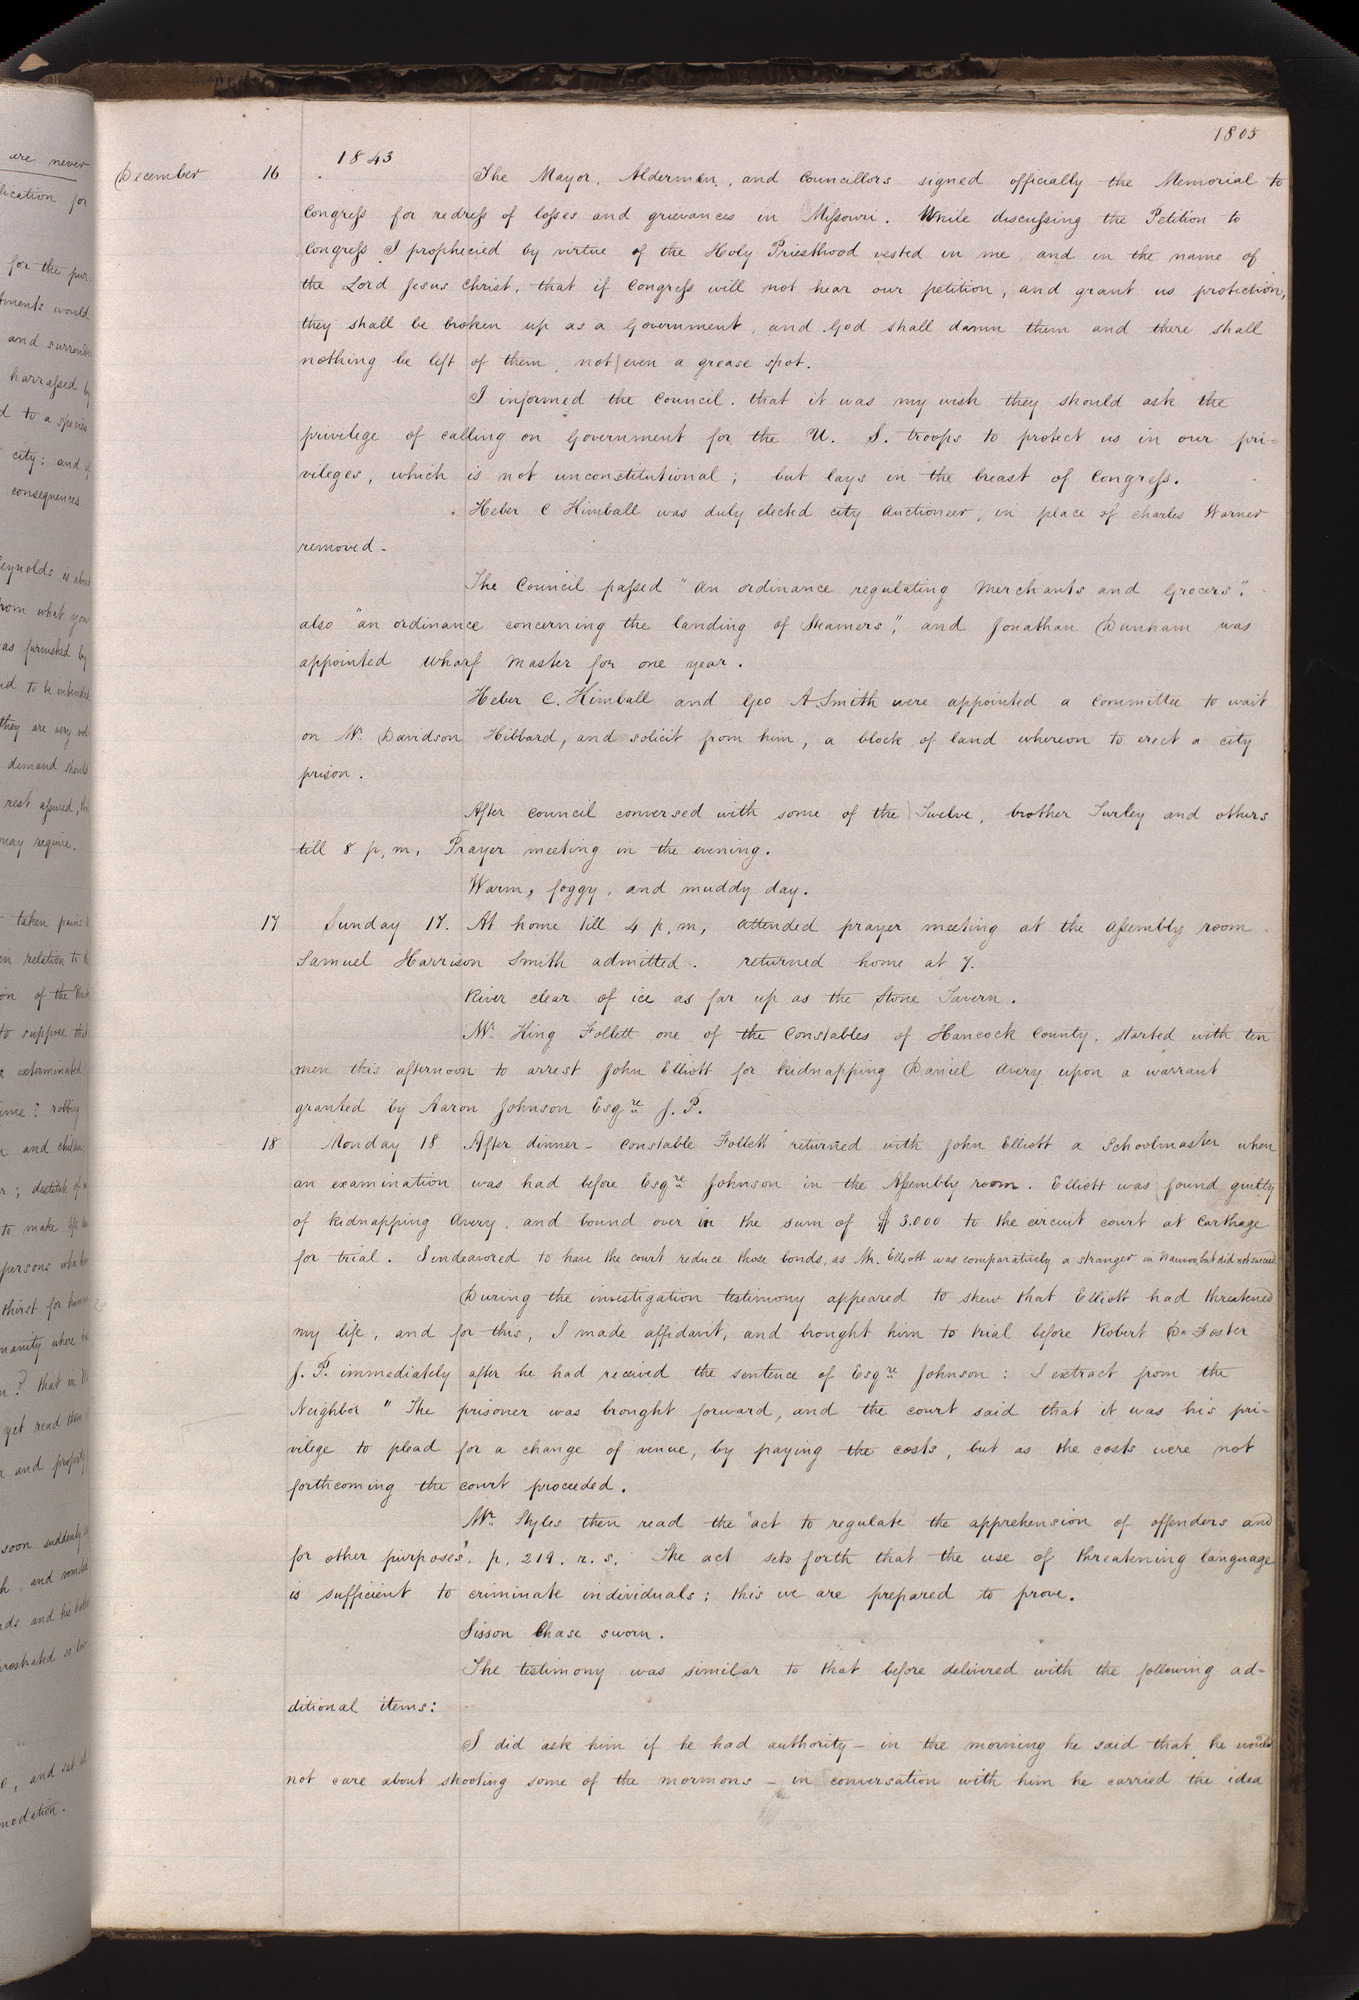 1805
1843
December 16 The Mayor, Aldermen, and Councillors signed officially the Memorial to
Congress for redress of losses and grievances in Missouri. While discussing the Petition to
Congress I prophecied by virtue of the Holy Priesthood vested in me, and in the name of
the Lord Jesus Christ, that if Congress will not hear our petition, and grant us protection,
they shall be broken up as a Government, and God shall damn them and there shall
nothing be left of them, not even a grease spot.
I informed the Council. that it was my wish they should ask the
privilege of calling on Government for the U. S. troops to protect us in our pri=
vileges, which is not unconstitutional; but lays in the breast of Congress.
Heber C Kimball was duly elected city Auctioneer, in place of Charles Warner
removed.
The Council passed "An ordinance regulating Merchants and Grocers".
also "an ordinance concerning the landing of Steamers," and Jonathan Dunham was
appointed Wharf Master for one year.
Heber C. Kimball and Geo A. Smith were appointed a committee to wait
on Mr. Davidson Hibbard, and solicit from him, a block of land whereon to erect a city
prison.
After council conversed with some of the Twelve, brother Turley and others
till 8 p,m, Prayer meeting in the evening.
Warm, foggy, and muddy day.
17 Sunday 17. At home till 4 p,m, attended prayer meeting at the assembly room
Samuel Harrison Smith admitted. returned home at 7.
River clear of ice as far up as the Stone Tavern.
Mr. King Follett one of the Constables of Hancock County, started with ten
men this afternoon to arrest John Elliott for kidnapping Daniel Avery upon a warrant
granted by Aaron Johnson Esqre J. P.
18 Monday 18 After dinner – Constable Follett returned with John Elliott a Schoolmaster when
an examination was had before Esqre Johnson in the Assembly room. Elliott was found guilty
of kidnapping Avery, and bound over in the sum of $3.000 to the circuit court at Carthage
for trial. I endeavored to have the court reduce those bonds, as Mr. Elliott was comparatively a stranger in Nauvoo, but did not succeed.
During the investigation testimony appeared to shew that Elliott had threatened
my life, and for this, I made affidavit, and brought him to trial before Robert D. Foster
J. P. immediately after he had received the sentence of Esqre Johnson: I extract from the
Neighbor "The prisoner was brought forward, and the court said that it was his pri=
vilege to plead for a change of venue, by paying the costs, but as the costs were not
forthcoming the court proceeded.
Mr. Styles then read the "act to regulate the apprehension of offenders and
for other purposes", p, 219. r. s. The act sets forth that the use of threatening language
is sufficient to criminate individuals; this we are prepared to prove.
Sisson Chase sworn.
The testimony was similar to that before delivered with the following ad=
ditional items:
I did ask him if he had authority – in the morning he said that he would
not care about shooting some of the mormons – in conversation with him he carried the idea
are never
lication for
for the pur
tments would
and surrende
harrassed by
d to a species
city: and if
consequences
eynolds is about
rom what you
as furnished by
ed to be intended
they are very
demand should
rest assured, the
may require.
taken pains
en relation to
on of the
to suppose that
exterminated
ime: robbing
and children
to make
persons who
thirst for human
manity where
n? that in
get read then
and property
soon suddenly
h, and vomited
ads and his
prostrated so
o, and sat
modation.